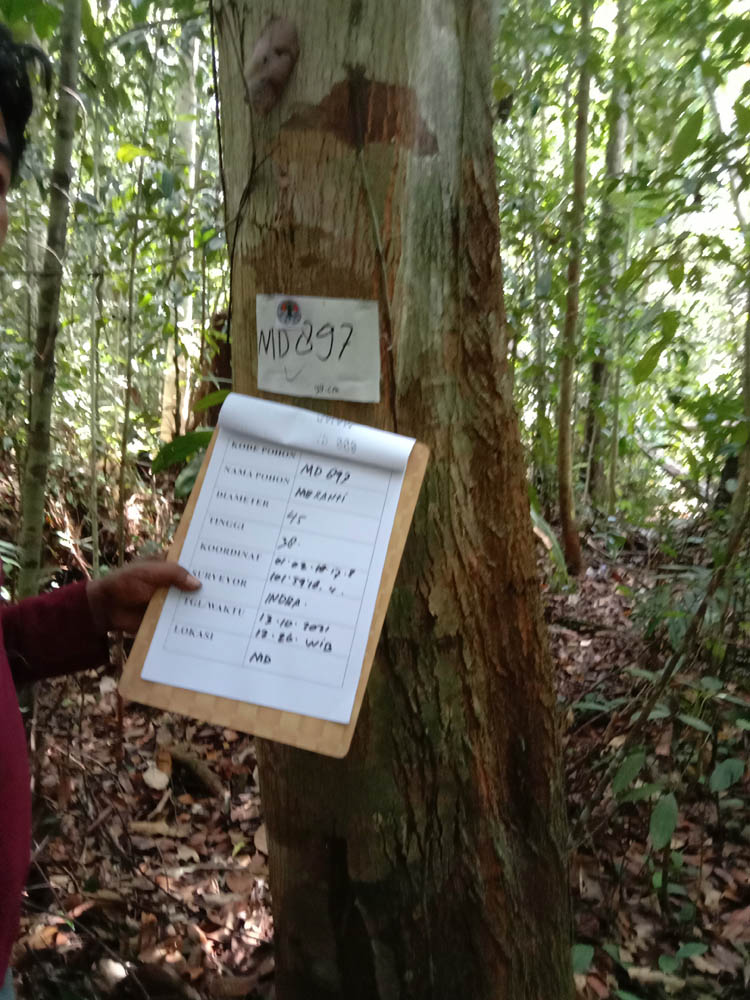 MD 897
KODE POHON MD 897
NAMA POHON MERANTI
DIAMETER 45
TINGGI 38
KOORDINAT
SURVEYOR INDRA
TGL/WAKTU 13.10.2021
12.26. WIB
LOKASI MD